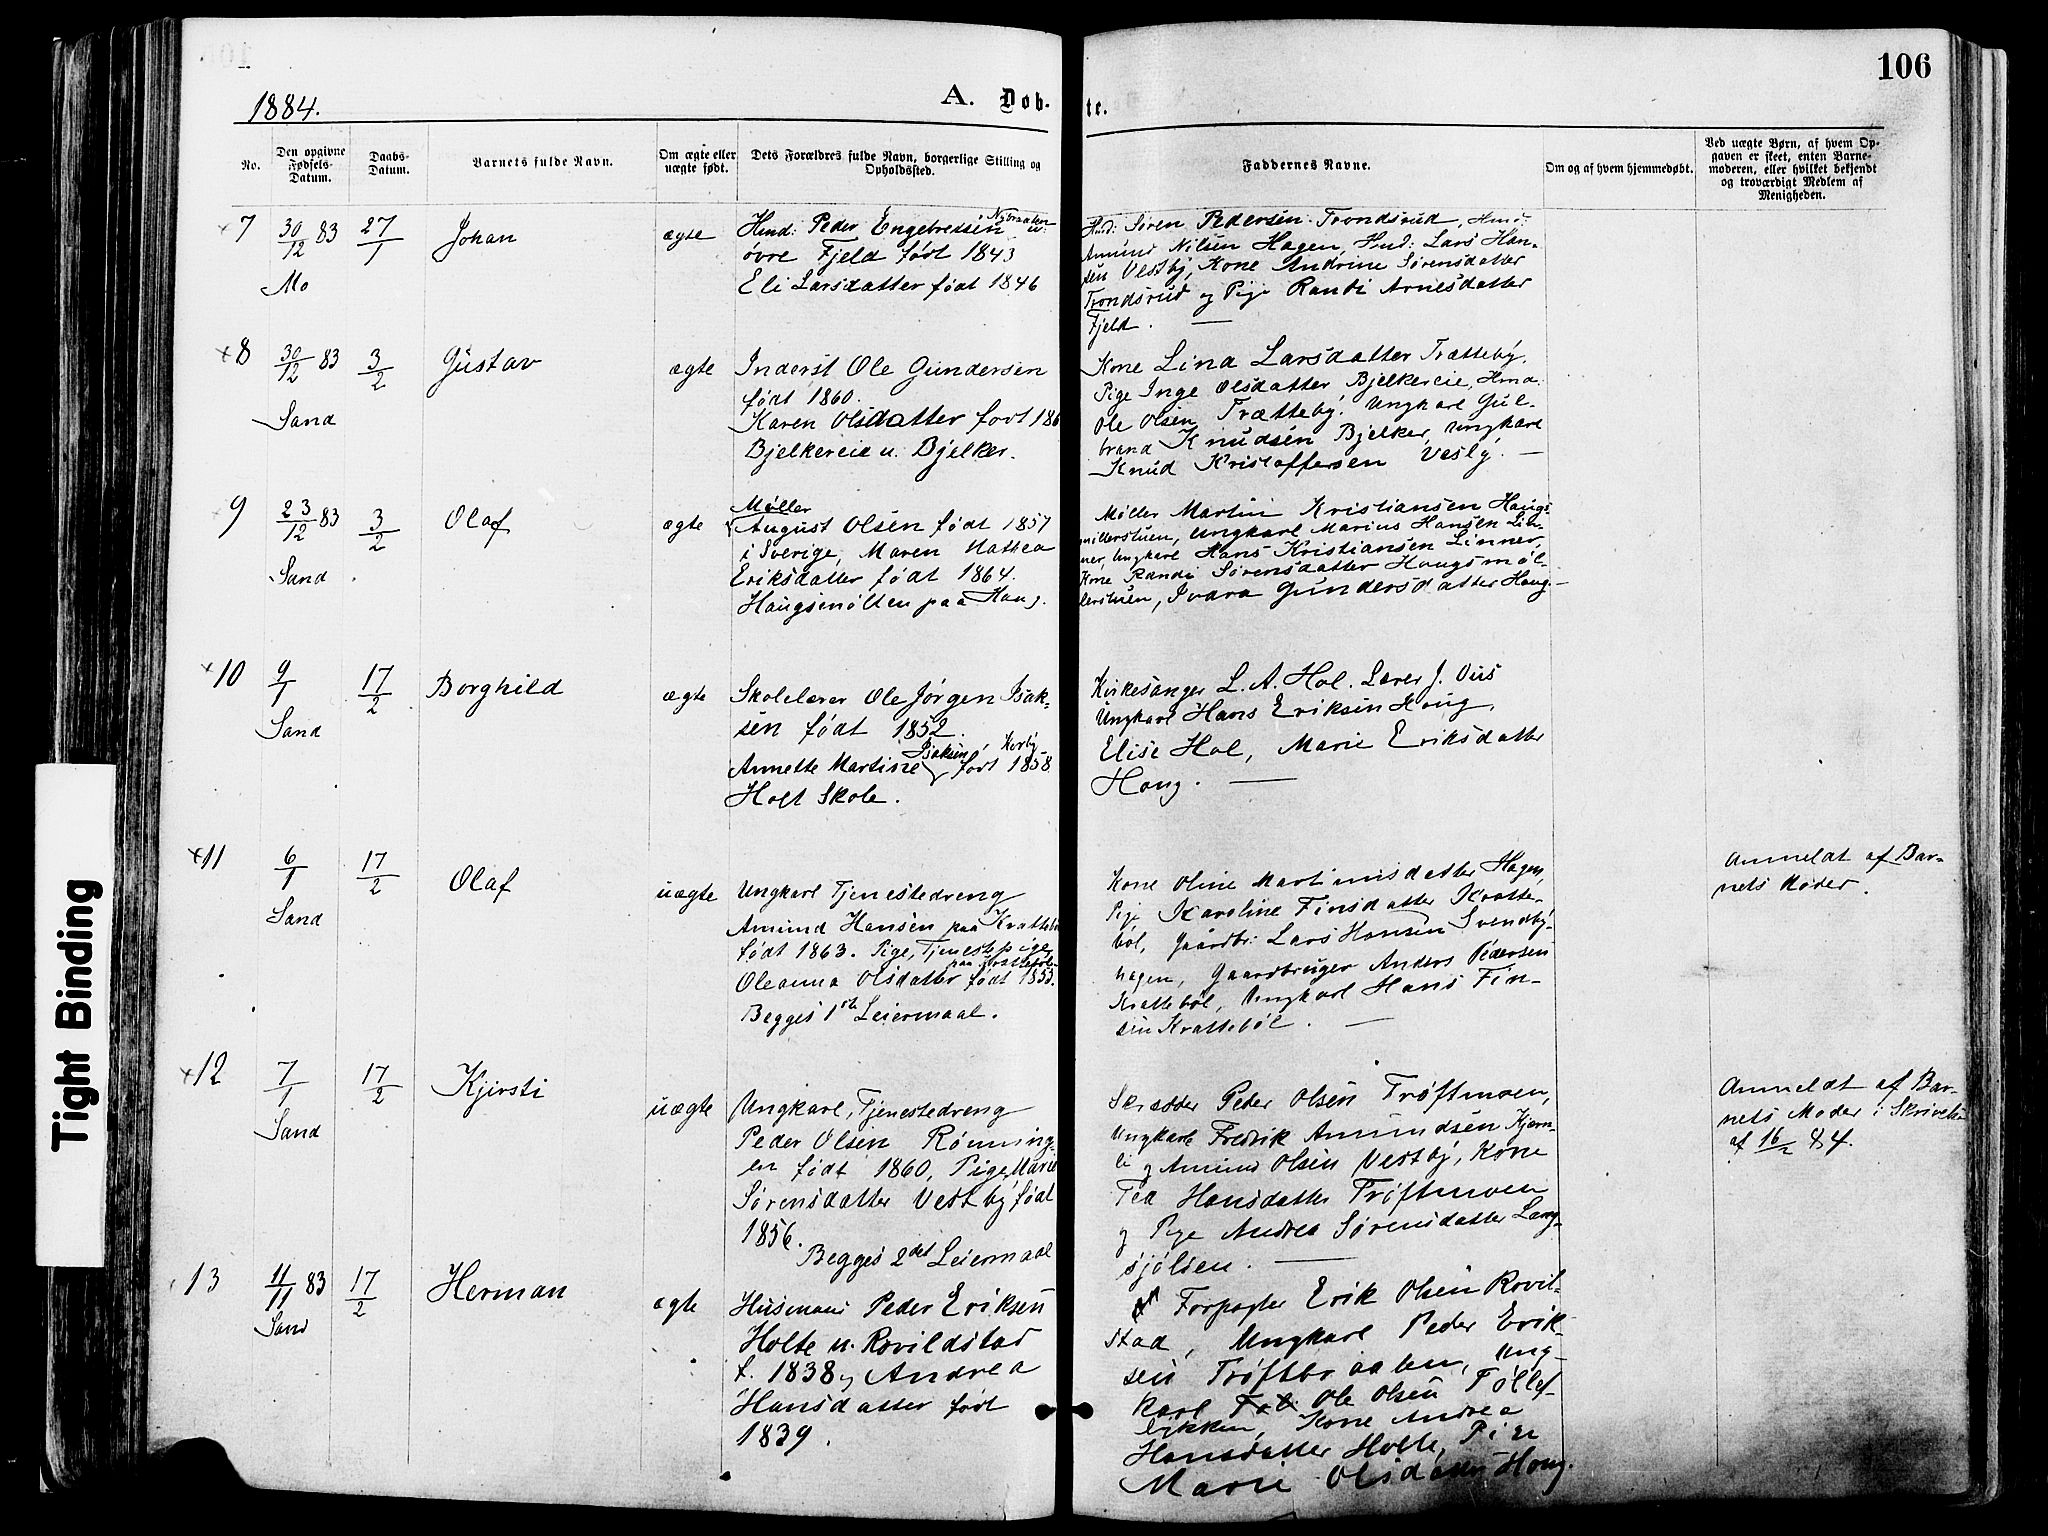 106
1884.
A. Døb-
te.
No.
Den opgivne
Fødsels-
Datum.
Daabs-
Datum.
Barnets fulde Navn.
Om ægte eller
uægte født.
Dets Forældres fulde Navn, borgerlige Stilling og
Opholdssted.
Faddernes Navne.
Om og af hvem hjemmedøbt.
Ved uægte Børn, af hvem Op-
gaven er skeet, enten Barne-
moderen, eller hvilket bekjendt
og troværdigt Medlem af
Menigheden.
7
30/12 83
Mo
27/1
Johan
ægte
Hmd: Peder Engebretsen Nybraaten u:
øvre Fjeld født 1843
Eli Larsdatter født 1846
Hmd: Søren Pedersen Trondsrud, Hmd
Amund Nilsen Hagen, Hmd: Lars Han-
sen Vestby, Kone Andrine Sørensdatter
Trondsrud og Pige Randi Arnesdatter
Fjeld. —
×8
30/12 83
Sand
3/2
Gustav
ægte
Inderst Ole Gundersen
født 1860.
Karen Olsdatter født 186
Bjelkereie u. Bjelker.
Kone Lina Larsdatter Trætteby,
Pige Inge Olsdatter Bjelkereie, Hmd:
Ole Olsen Trætteby. Ungkarl Gul-
brand Knudsen Bjelker, Ungkarl
Knud Kristoffersen Vesly. —
9
23/12 83
Sand
3/2
Olaf
ægte
Møller
August Olsen født 1857
i Sverige, Maren Mathea
Eriksdatter født 1864.
Haugsmøllen paa Haug.
Møller Martin Kristiansen Haugs-
møllerstuen, Ungkarl Marius Hansen Lin-
ner, Ungkarl Hans Kristiansen Linner,
Kone Randi Sørensdatter Haugsmøl-
lerstuen, Ivara Gundersdatter Haug. —
×10
9/1
Sand
17/2
Borghild
ægte
Skolelærer Ole Jørgen Isak-
sen født 1852.
Annette Martine Isaksen født 1858
Holt Skole.
Kirkesanger L. A. Hol. Lærer J. Viis
Ungkarl Hans Eriksen Haug,
Elise Hol, Marie Eriksdatter
Haug. —
×11
6/1
Sand
17/2
Olaf
uægte
Ungkarl Tjenestedreng
Amund Hansen paa Krattebøl
født 1863. Pige, Tjenestepige
paa Krattebøl
Oleanna Olsdatter født 1853.
Begges 1ste Leiermaal.
Kone Oline Martinusdatter Hagen,
Pige Karoline Finsdatter Kratte-
bøl, Gaardbr: Lars Hansen Svendby-
hagen, Gaardbruger Anders Pedersen
Krattebøl, Ungkarl Hans Fin-
sen Krattebøl. —
Anmeldt af Bar-
nets Moder.
×12
7/1
Sand
17/2
Kjirsti
uægte
Ungkarl, Tjenestedreng
Peder Olsen Rønning-
en født 1860, Pige Marie
Sørensdatter Vestby født
1856.
Begges 2det Leiermaal
Skrædder Peder Olsen Trøftmoen,
Ungkarl Fredrik Amundsen Kjærn-
li og Amund Olsen Vestby, Kone
Tea Hansdatter Trøftmoen
og Pige Andrea Sørensdatter Lang-
sjølien. —
Anmeldt af Bar-
nets Moder i Skrivelse
af 16/2 84.
13
11/11 83
Sand
17/2
Herman
ægte
Husmand Peder Eriksen
Holte u. Rovildstad
f. 1838 og Andrea
Hansdatter født
1839.
Forpagter Erik Olsen Rovil-
stad, Ungkarl Peder Erik-
sen Trøftbraaten, Ung-
karl Ole Olsen Tollef-
løkken, Kone Andrea
Hansdatter Holte, Pige
Marie Olsdatter Haug.
Tight Binding